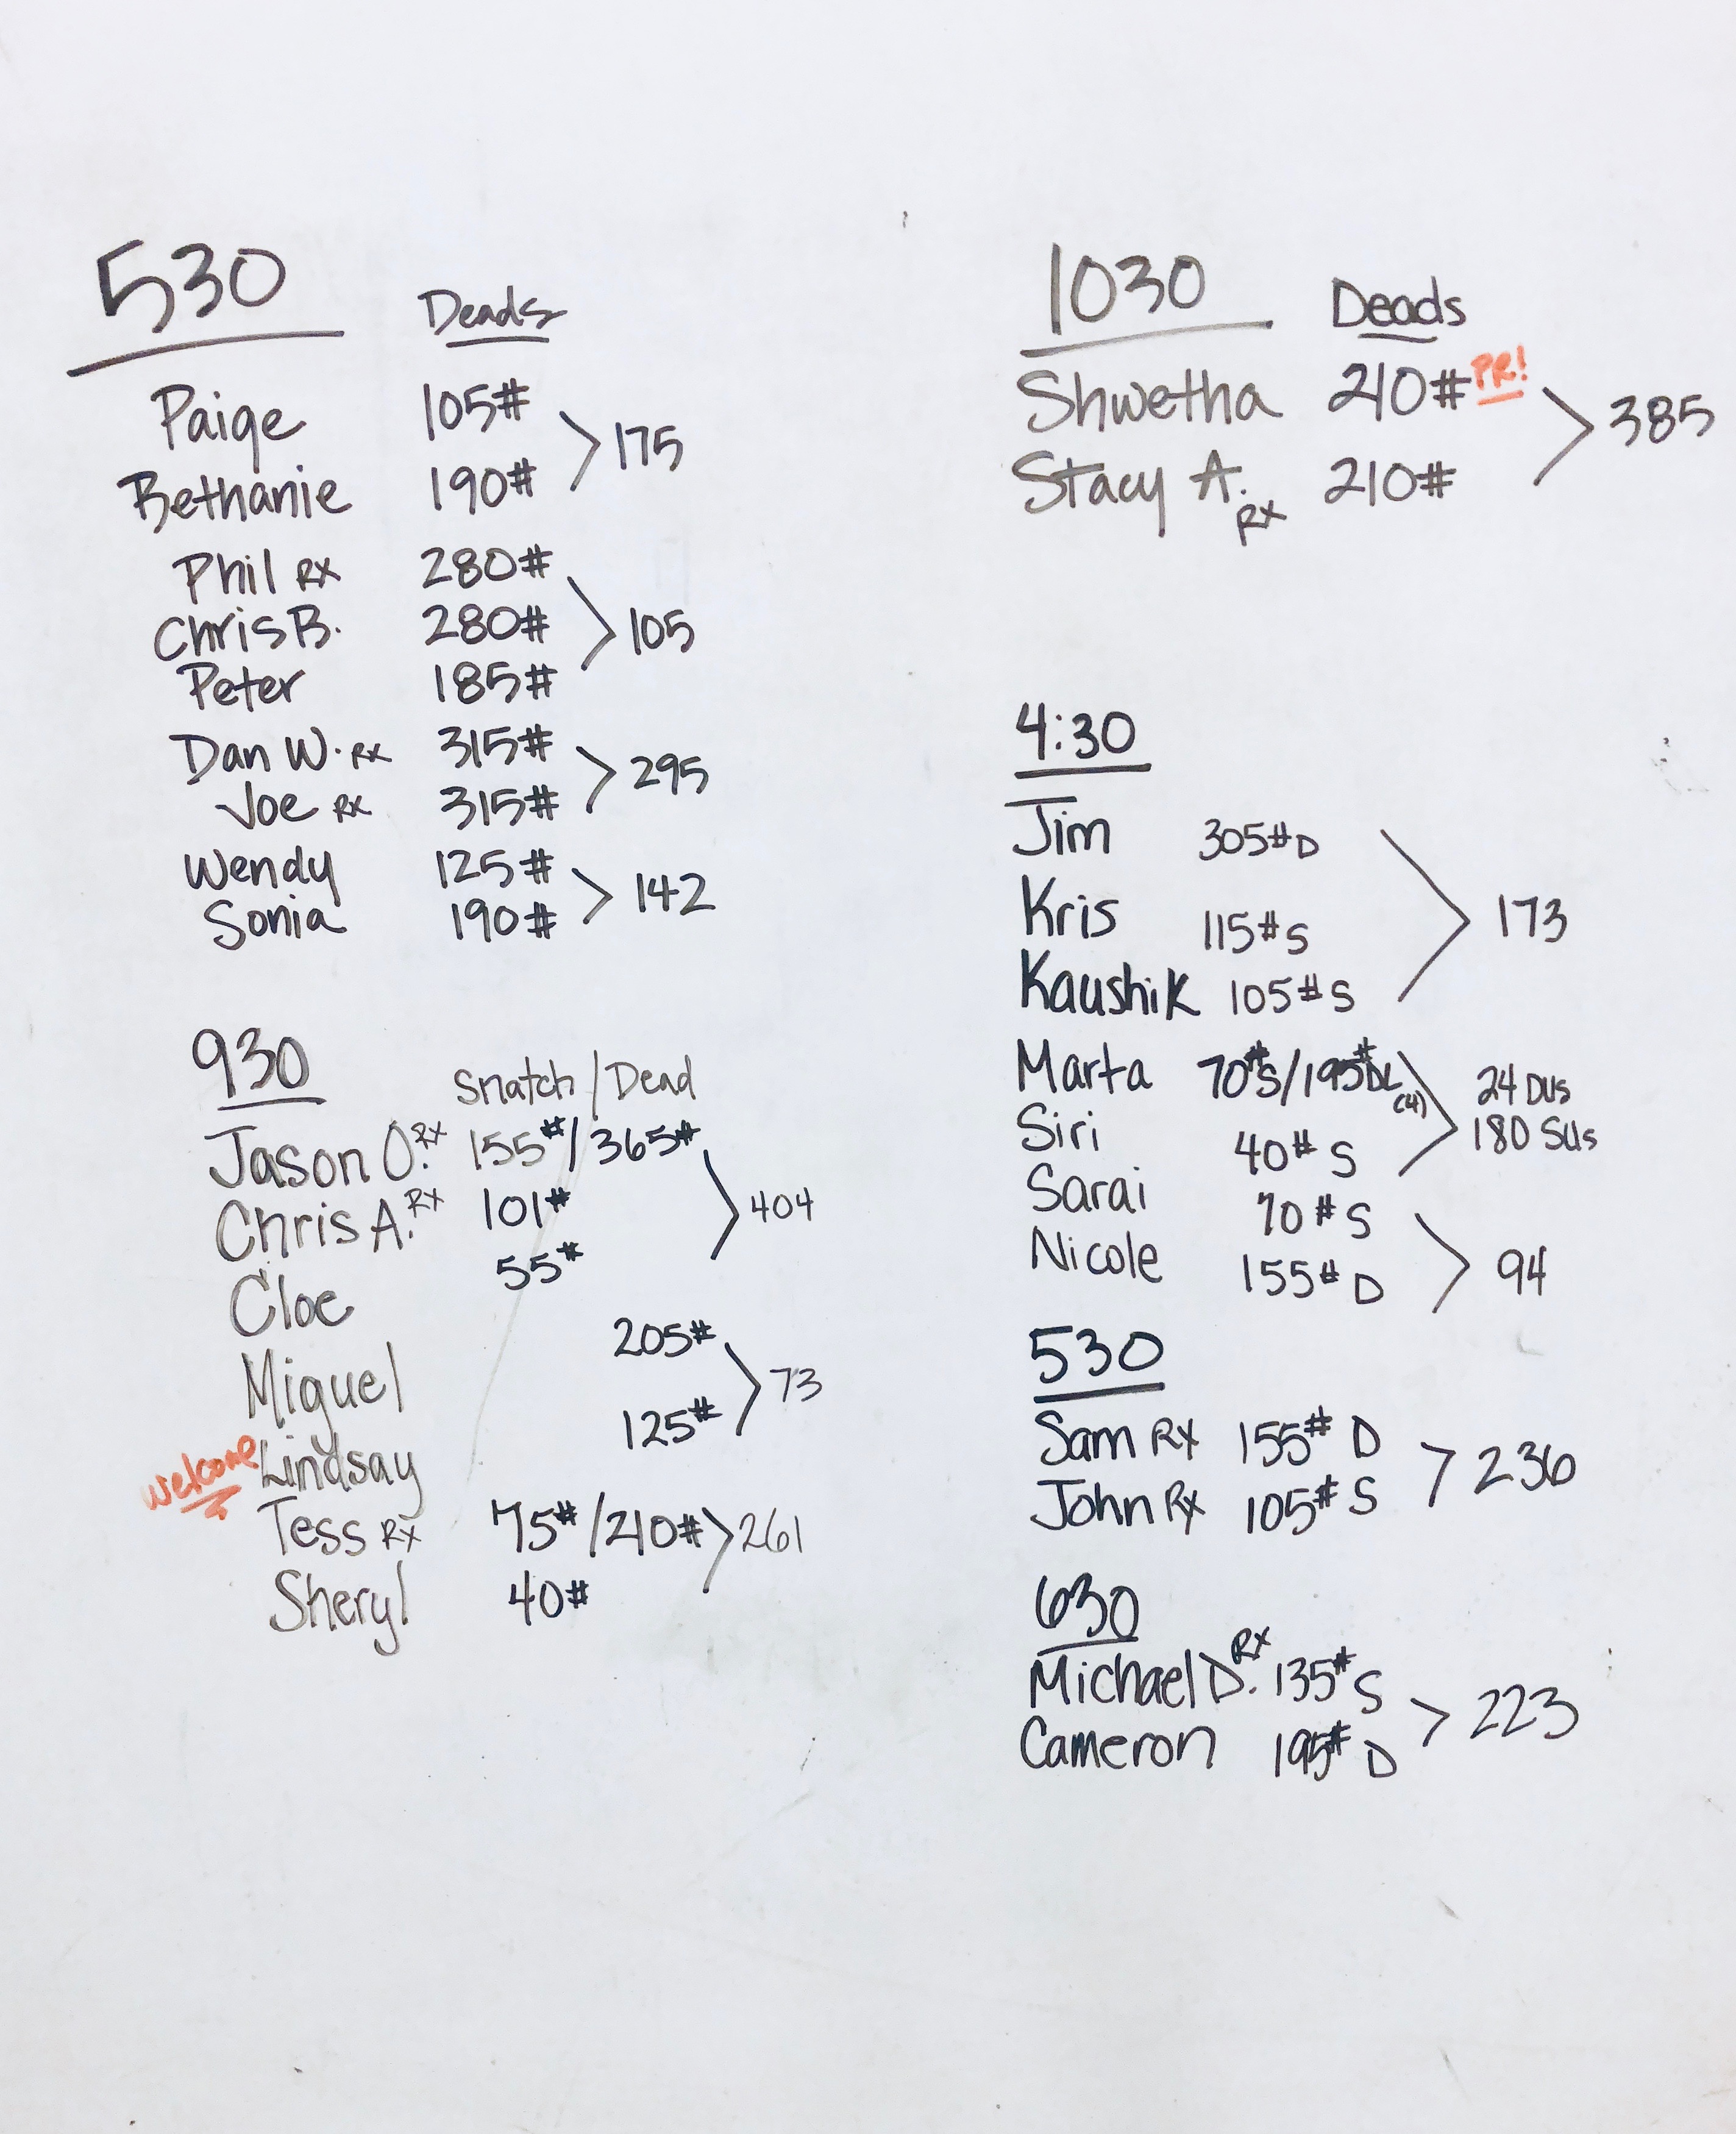 530 Deads
Paige 105#
> 175
Bethanie 190#
Phil RX 280#
Chris B. 280# > 105
Peter 185#
Dan W. RX 315#
> 295
Joe RX 315#
Wendy 125#
> 142
Sonia 190#
930
Snatch / Dead
Jason O. RX 155# / 365#
Chris A. RX 101# > 404
Cloe 55#
Miguel 205#
> 73
welcome Lindsay 125#
Tess RX 75# / 210# > 261
Sheryl 40#
1030 Deads
Shwetha 210# PR!
> 385
Stacy A. RX 210#
4:30
Jim 305# D
Kris 115# S > 173
Kaushik 105# S
Marta 70# S / 195# DL (4) 24 DUs
Siri 40# S > 180 SUs
Sarai 70# S
> 94
Nicole 155# D
530
Sam RX 155# D
> 236
John RX 105# S
630
Michael D. RX 135# S
> 223
Cameron 195# D